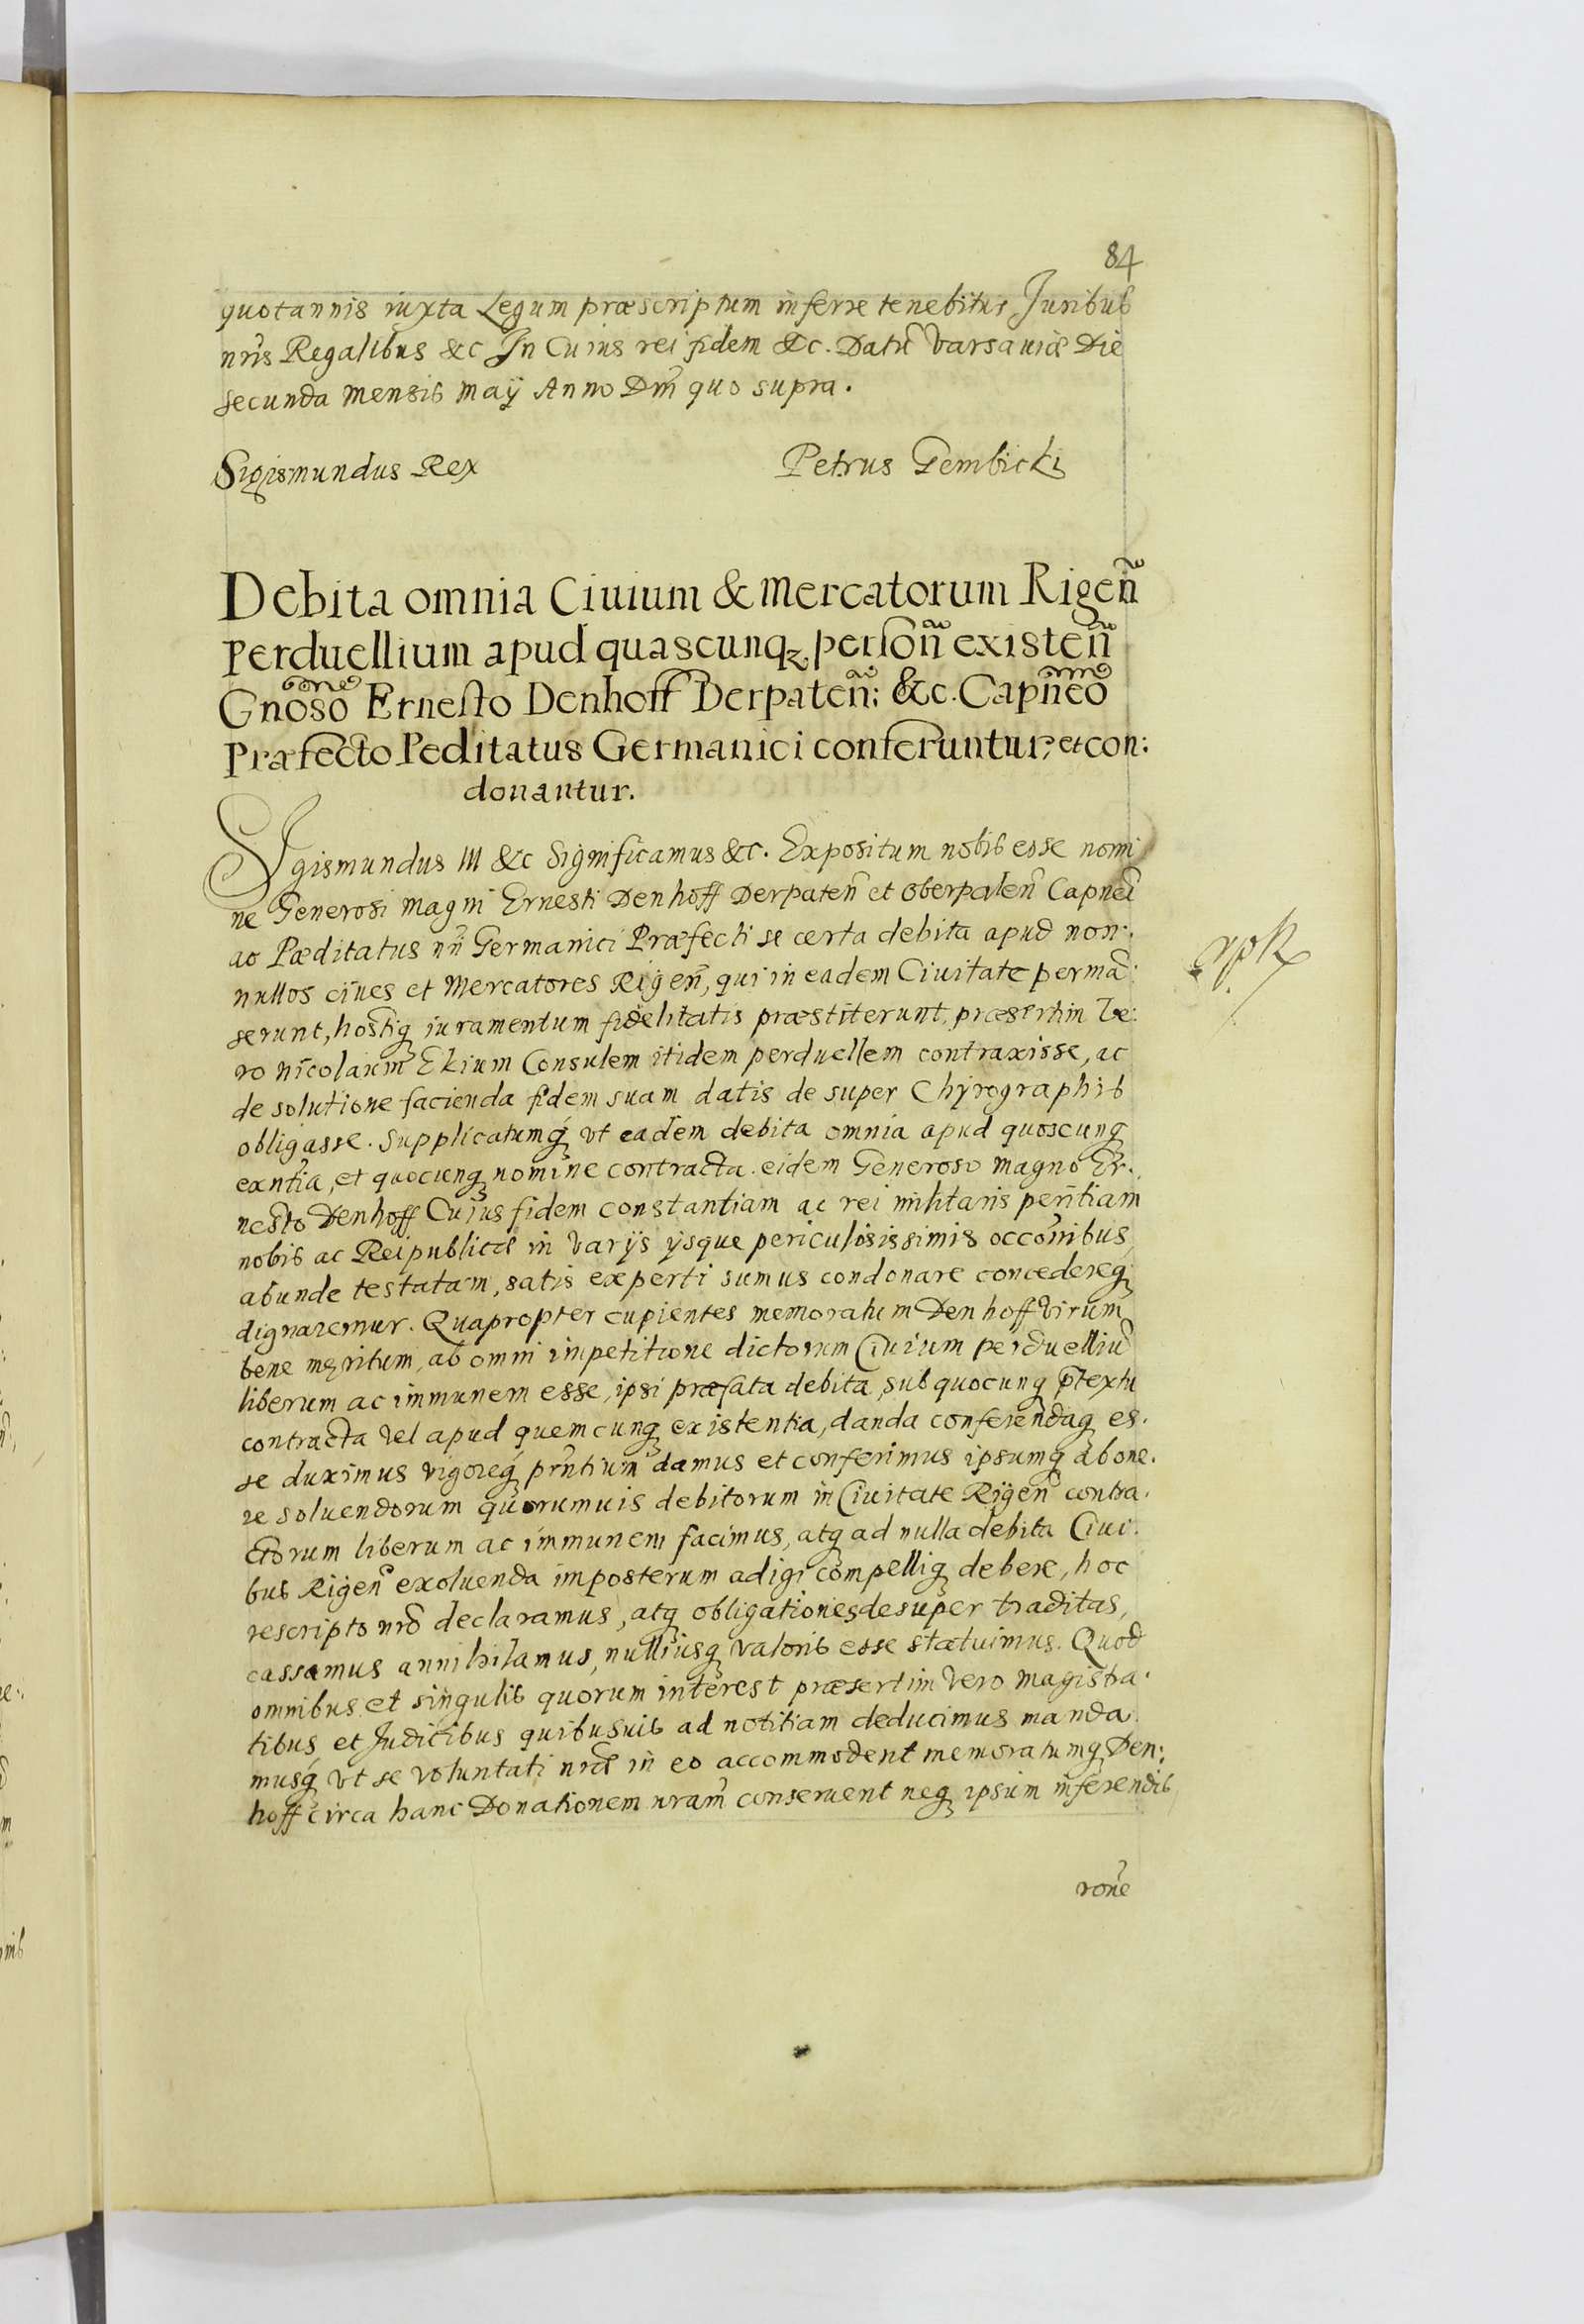 84
quotannis iuxta Legum præscriptum inferre tenebitur Juribus
nr̃is Regalibus &c In Cuius rei fidem &c. Datũ Varsauiæ Die
secunda Mensis Maÿ Anno Dñi quo supra.
Sigismundus Rex
Petrus Gembicki
Debita omnia Ciuium & Mercatorum Rigeñ
Perduellium apud quascunqꝫ persoñ existeñ
Gnoso Ernesto Denhoff Derpateñ: &c. Capñeo
Præfecto Peditatus Germanici conferuntur, et con:
donantur.
Sigismundus III &c Significamus &c. Expositum nobis esse nomi
ne Generosi Magni Ernesti Denhoff Derpateñ et Oberpaleñ Capnei
ac Pæditatus nr̃i Germanici Præfecti se certa debita apud non:
nullos ciues et Mercatores Rigeñ, qui in eadem Ciuitate permã:
serunt, hostiqꝫ iuramentum fidelitatis præstiterunt, præsertim Ve:
ro Nicolaum Ekium Consulem itidem perduellem contraxisse, ac
de solutione facienda fidem suam datis de super Chyrographis
obligasse. Supplicatumqꝫ vt eadem debita omnia apud quoscunqꝫ
exñtia, et quocunqꝫ nomine contracta. eidem Generoso Magno Er.
nesto Denhoff Cuius fidem constantiam ac rei militaris peritiam
nobis ac Reipublicæ in varÿs ÿsque periculosissimis occõnibus
abunde testatam, satis experti sumus condonare concedereqꝫ
dignaremur. Quapropter cupientes memoratum Denhoff Virum
bene meritum, ab omni impetitione dictorum Ciuium perduelliũ
liberum ac immunem esse, ipsi præfata debita sub quocunqꝫ p̃textu
contracta vel apud quemcunqꝫ existentia, danda conferendaqꝫ es.
se duximus vigoreqꝫ prñtium damus et conferimus ipsumqꝫ ab one.
re soluendorum quorumuis debitorum in Ciuitate Rigeñ contra.
ctorum liberum ac immunem facimus, atqꝫ ad nulla debita Ciui.
bus Rigeñ exoluenda imposterum adigi compelliqꝫ debere, hoc
rescripto nrõ declaramus, atqꝫ obligationes desuper traditas,
cassamus annihilamus, nulliusqꝫ valoris esse statuimus. Quod
omnibus et singulis quorum interest præsertim Vero Magistra.
tibus et Judicibus quibusuis ad notitiam deducimus manda
musqꝫ vt se voluntati nræ in eo accommodent memoratumqꝫ Den:
hoff circa hanc Donationem nram̃ conseruent neqꝫ ipsum inferendis
rone